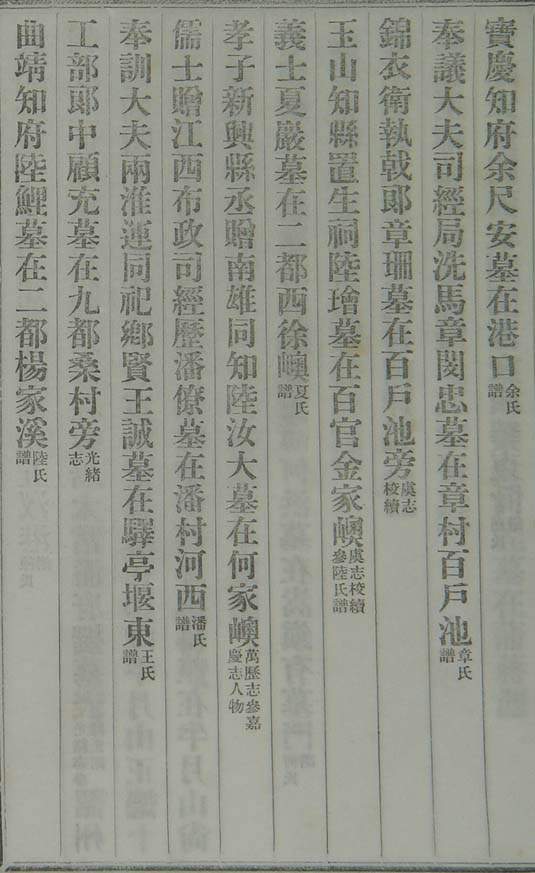 寶慶知府余尺安墓在港口余氏譜
奉議大夫司經局洗馬章閔忠墓在章村百戶池章氏譜
錦衣衛執戟郎章珊墓在百戶池旁虞志校續
玉山知縣置生祠陸璿墓在百官金家嶴虞志校續參陸氏譜
義士夏巖墓在二都西徐嶴夏氏譜
孝子新興縣丞贈南雄同知陸汝大墓在何家嶴萬歷志參嘉慶志人物
儒士贈江西布政司經歷潘僚墓在潘村河西潘氏譜
奉訓大夫兩淮運同祀鄉賢王誠墓在驛亭堰東王氏譜
工部郎中顧充墓在九都桑村旁光緒志
曲靖知府陸鯉墓在二都楊家溪陸氏譜